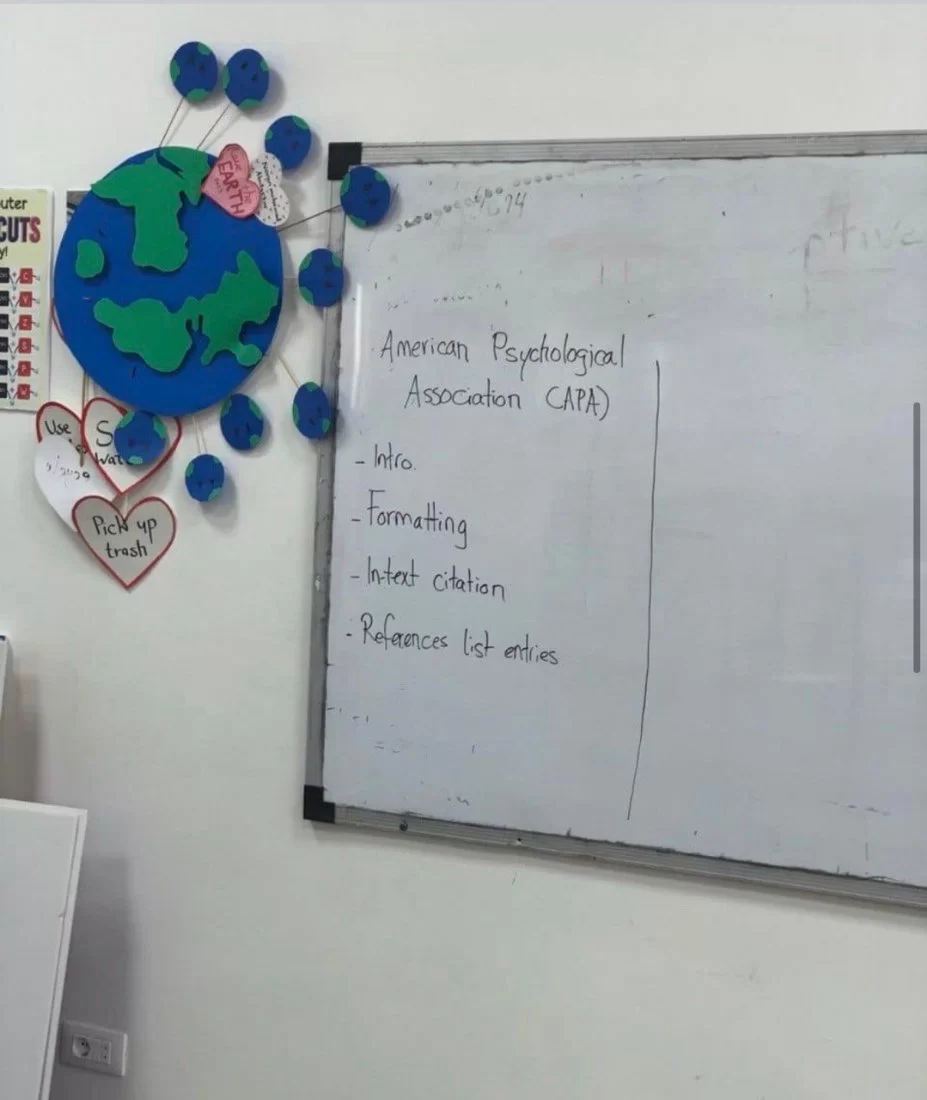 CUTS
Save the
EARTH
Use
S
Pick up
trash
American Psychological
Association (APA)
- Intro.
- Formatting
- In-text citation
- References list entries